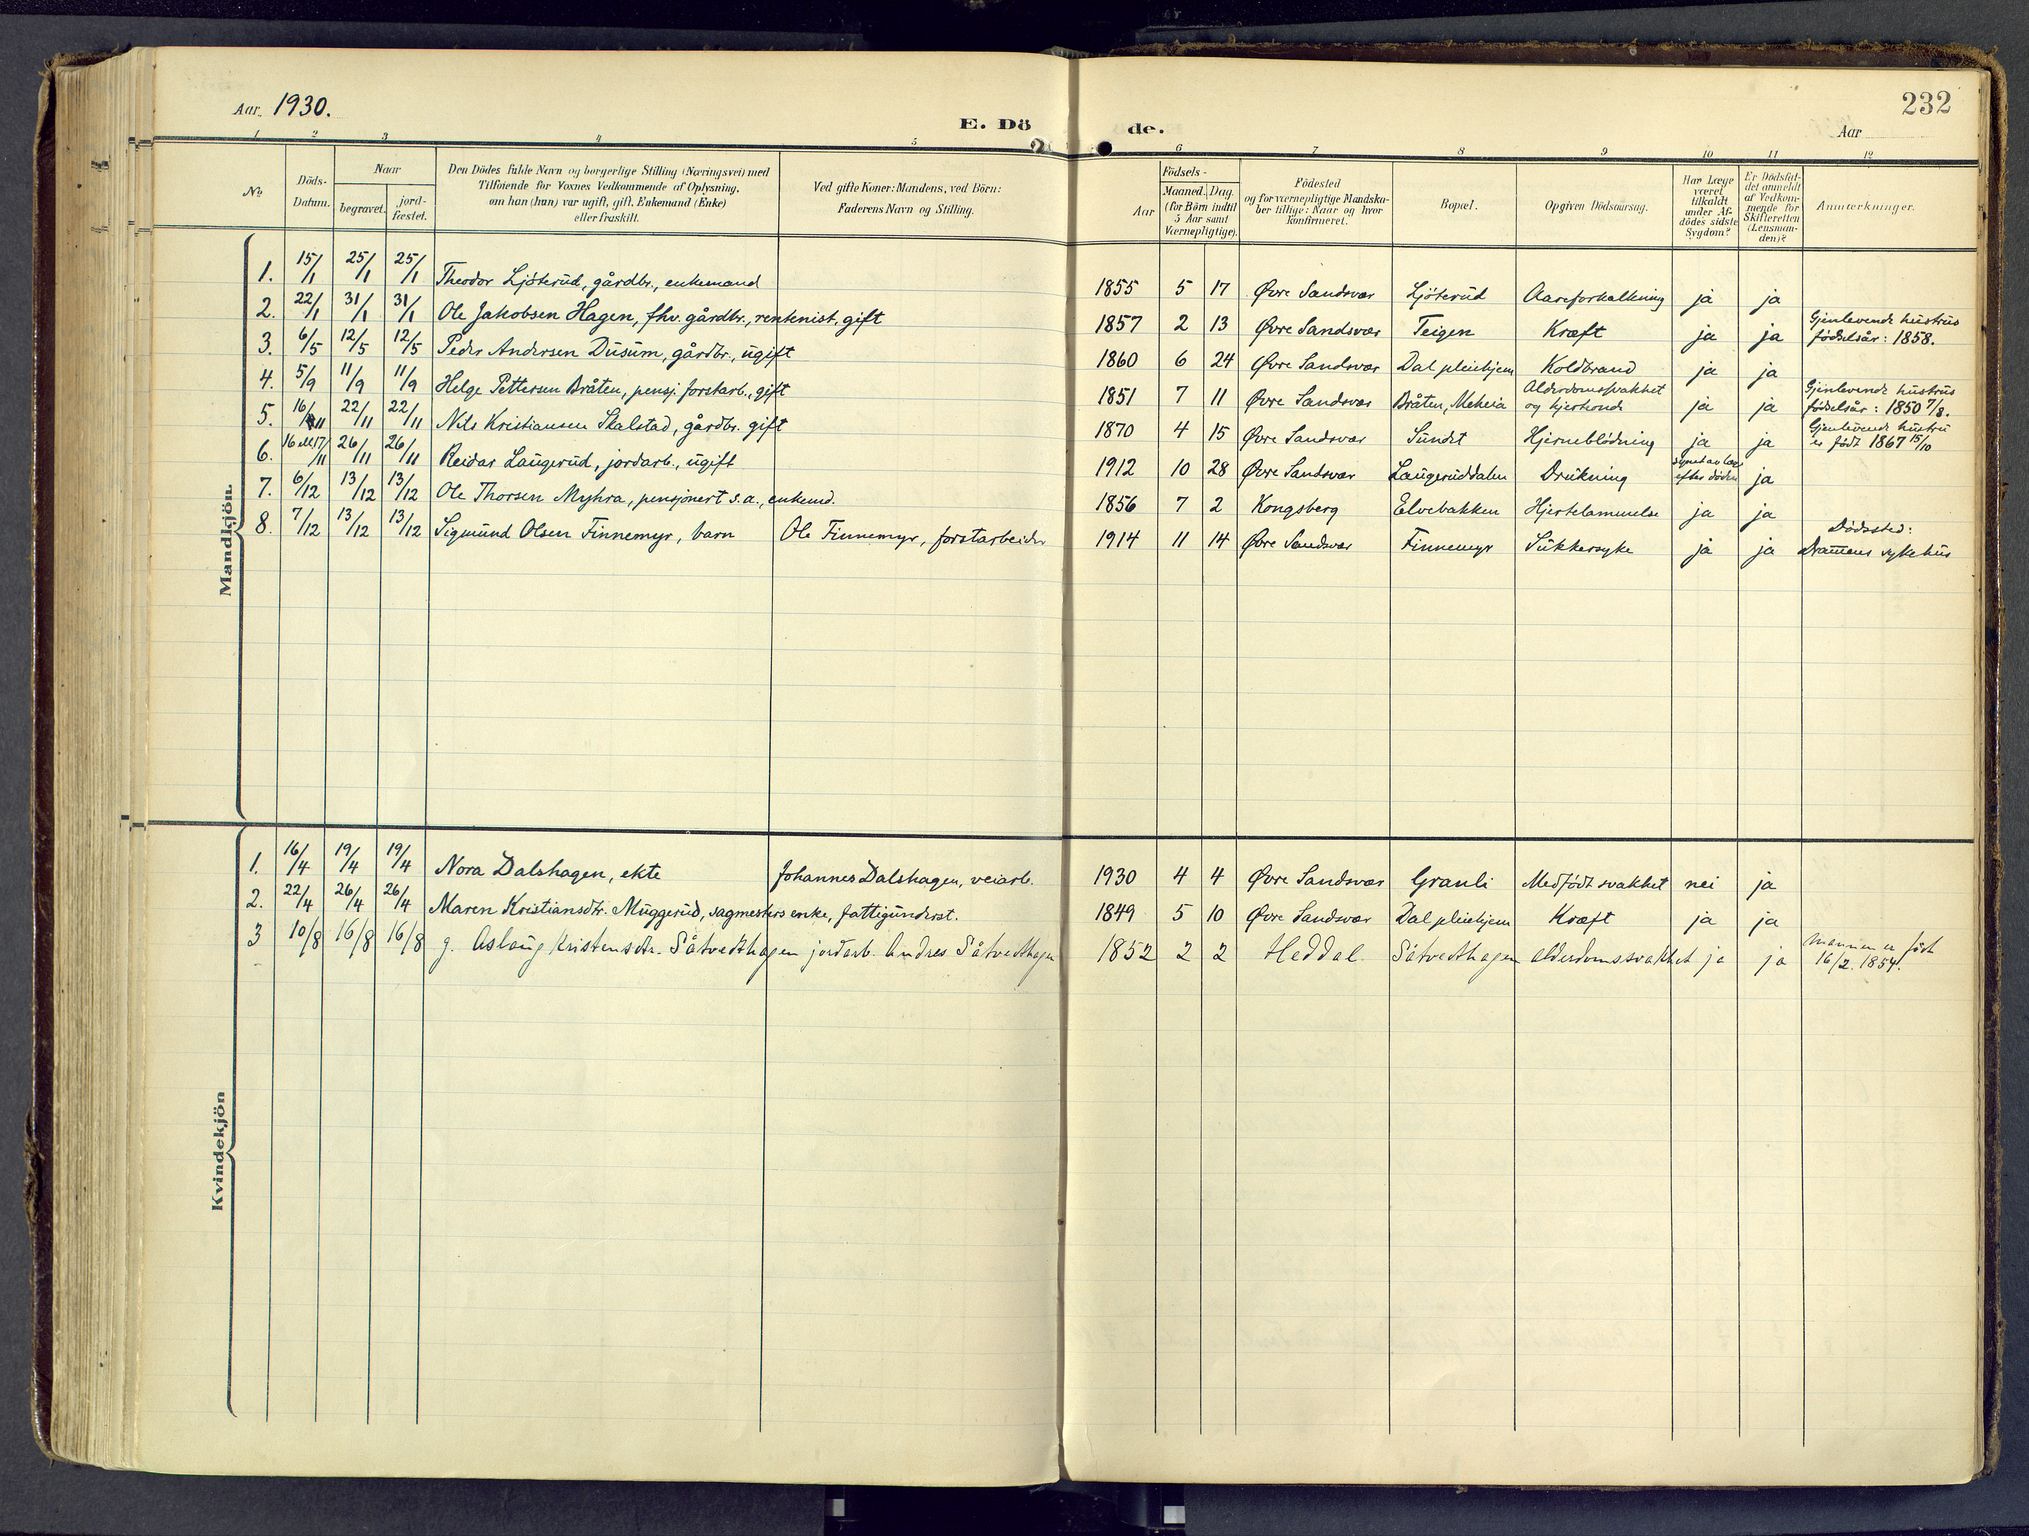 Aar. 1930.
E. Dö de.
232
Aar
1 2 3 4 5 6 7 8 9 10 11 12
No.
Döds-Datum.
Naar
begravet.
jord-fæstet.
Den Dödes fulde Navn og borgerlige Stilling (Næringsvei) med
Tilföiende for Voxnes Vedkommende af Oplysning,
om han (hun) var ugift, gift, Enkemand (Enke)
eller fraskilt.
Ved gifte Koner: Mandens, ved Börn:
Faderens Navn og Stilling.
Födsels-
Aar
Maaned. Dag.
(for Börn indtil
5 Aar samt
Værnepligtige).
Födested
og for værnepligtige Mandska-
ber tillige: Naar og hvor
konfirmeret.
Bopæl.
Opgiven Dödsaarsag.
Har Læge
været
tilkaldt
under Af-
dödes sidste
Sygdom?
Er Dödsfal-
det anmeldt
af Vedkom-
mende for
Skifteretten
(Lensman-
den)?
Anmærkninger.
Mandkjön.
1. 15/1 25/1 25/1 Theodor Ljöterud, gårdbr., enkemand 1855 5 17 Øvre Sandsvær Ljöterud Aareforkalkning ja ja
2. 22/1 31/1 31/1 Ole Jakobsen Hagen, fhv. gårdbr., rentenist, gift 1857 2 13 Øvre Sandsvær Teigen Kræft ja ja Gjenlevende hustrus fødselsår: 1858.
3. 6/5 12/5 12/5 Peder Andersen Dusum, gårdbr., ugift 1860 6 24 Øvre Sandsvær Dal pleiehjem Koldbrand ja ja
4. 5/9 11/9 11/9 Helge Pettersen Bråten, pensj. forstarb., gift 1851 7 11 Øvre Sandsvær Bråten, Meheia Alderdomssvakhet og hjerteonde ja ja Gjenlevende hustrus fødselsår: 1850 7/8.
5. 16/11 22/11 22/11 Nils Kristiansen Skalstad, gårdbr. gift 1870 4 15 Øvre Sandsvær Sundet Hjerneblödning ja ja Gjenlevende hustru er født 1867 15/10
6. 16 el 17/11 26/11 26/11 Reidar Laugerud, jordarb., ugift 1912 10 28 Øvre Sandsvær Laugeruddalen Drukning synet av læge efter döden ja
7. 6/12 13/12 13/12 Ole Thorsen Myhra, pensjonert s.a., enkemd. 1856 7 2 Kongsberg Elvebakken Hjertelammelse ja ja
8. 7/12 13/12 13/12 Sigmund Olsen Finnemyr, barn Ole Finnemyr, forstarbeider 1914 11 14 Øvre Sandsvær Finnemyr Sukkersyke ja ja Dødssted: Dramens sykehus
Kvindekjön
1. 16/4 19/4 19/4 Nora Dalshagen, ekte Johannes Dalshagen, veiarb. 1930 4 4 Øvre Sandsvær Granli Medfödt svakhet nei ja
2. 22/4 26/4 26/4 Maren Kristiansdtr. Muggerud, sagmesters enke, fattigunderst. 1849 5 10 Øvre Sandsvær Dal pleiehjem Kræft ja ja
3 10/8 16/8 16/8 g. Aslaug Kristensdtr. Såtvedthagen jordarb. Andres Såtvedthagen 1852 2 2 Heddal. Såtvedthagen alderdomssvakhet ja ja mannen er født 16/2. 1854.